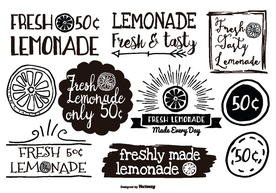 FRESH 50¢
LEMONADE
LEMONADE
Fresh & tasty
Fresh
Tasty
Lemonade
Fresh
Lemonade
only 50¢
FRESH LEMONADE
Made Every Day
50¢
FRESH 50¢
LEMONADE
freshly made
lemonade
50¢
Designed by Vecteezy